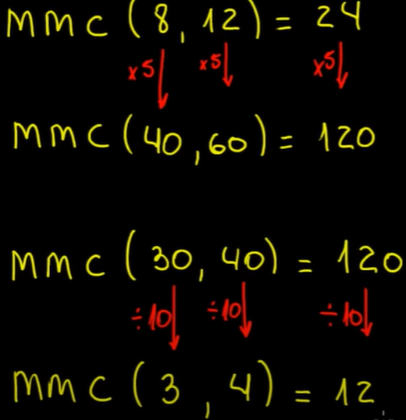 MMC (8, 12) = 24
×5 ×5 ×5
MMC (40, 60) = 120
MMC (30, 40) = 120
÷10 ÷10 ÷10
MMC (3, 4) = 12